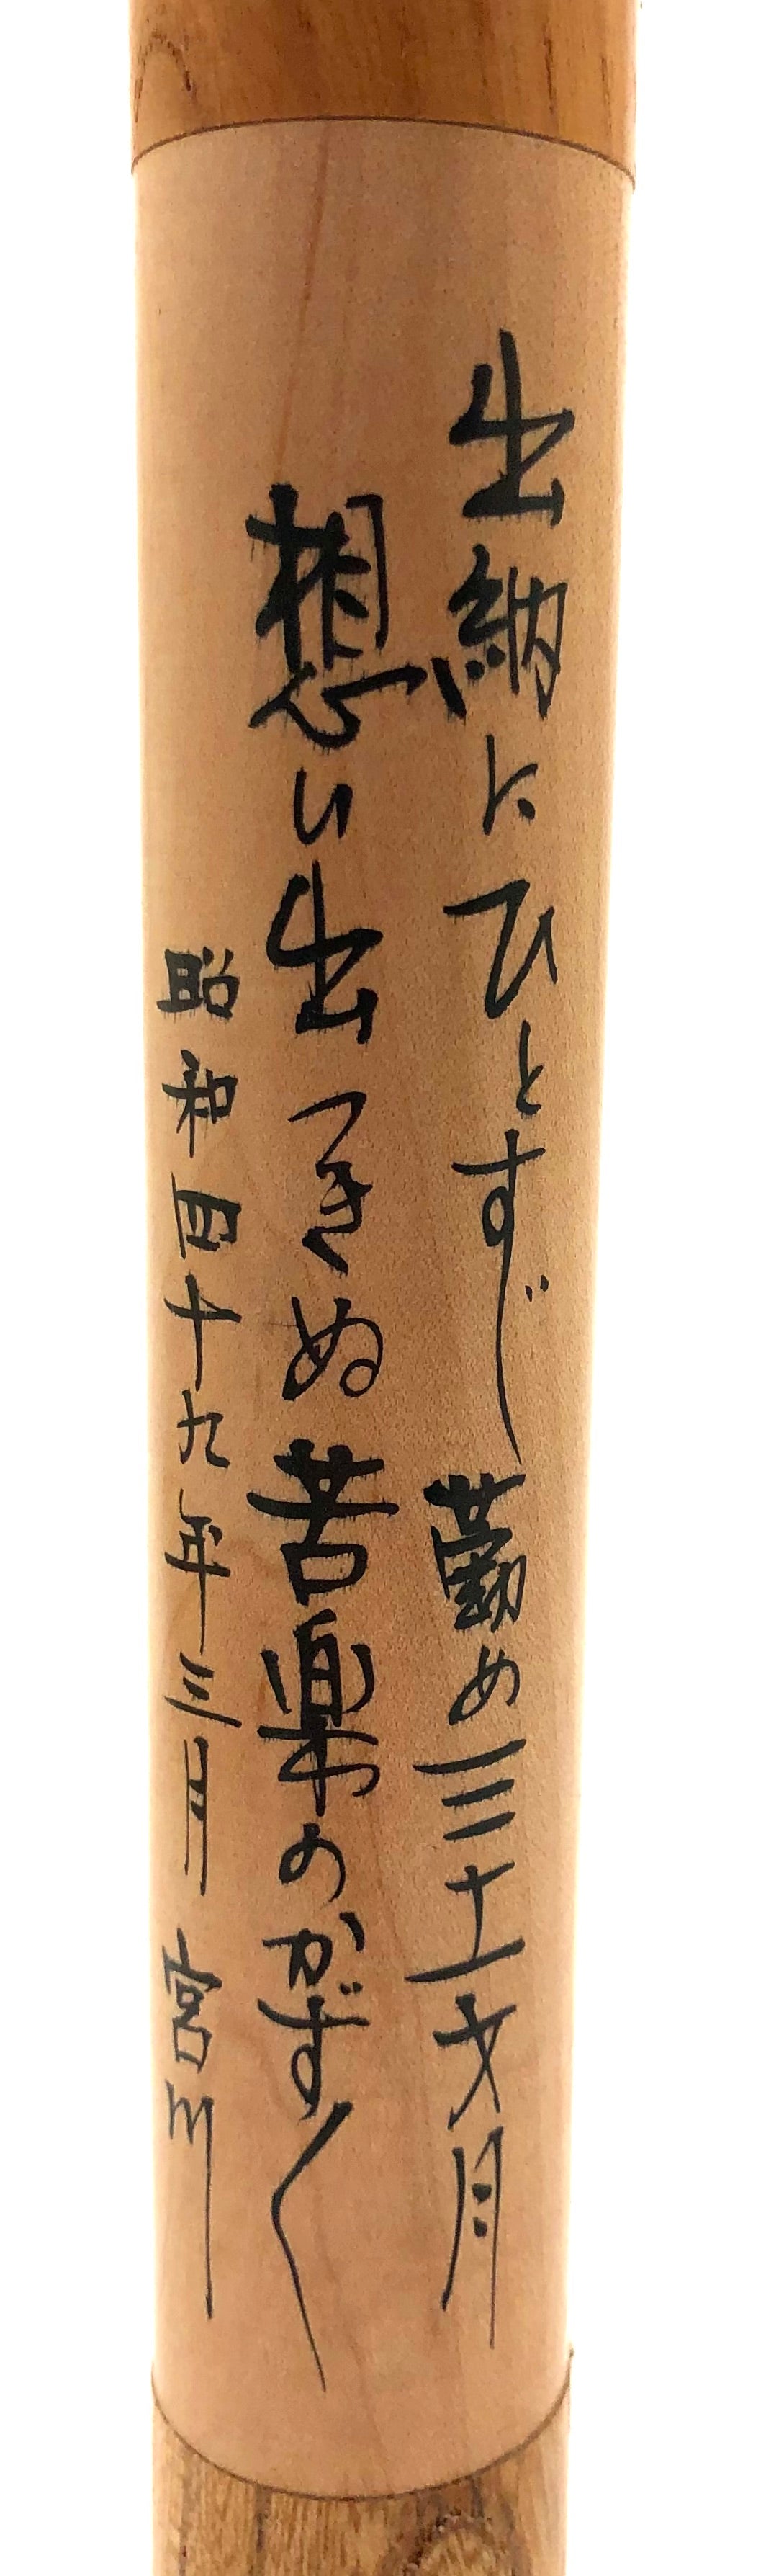 出納にひとすじ 勤め三十一才月
想い出つきぬ苦楽のかず〱
昭和四十九年三月 宮川